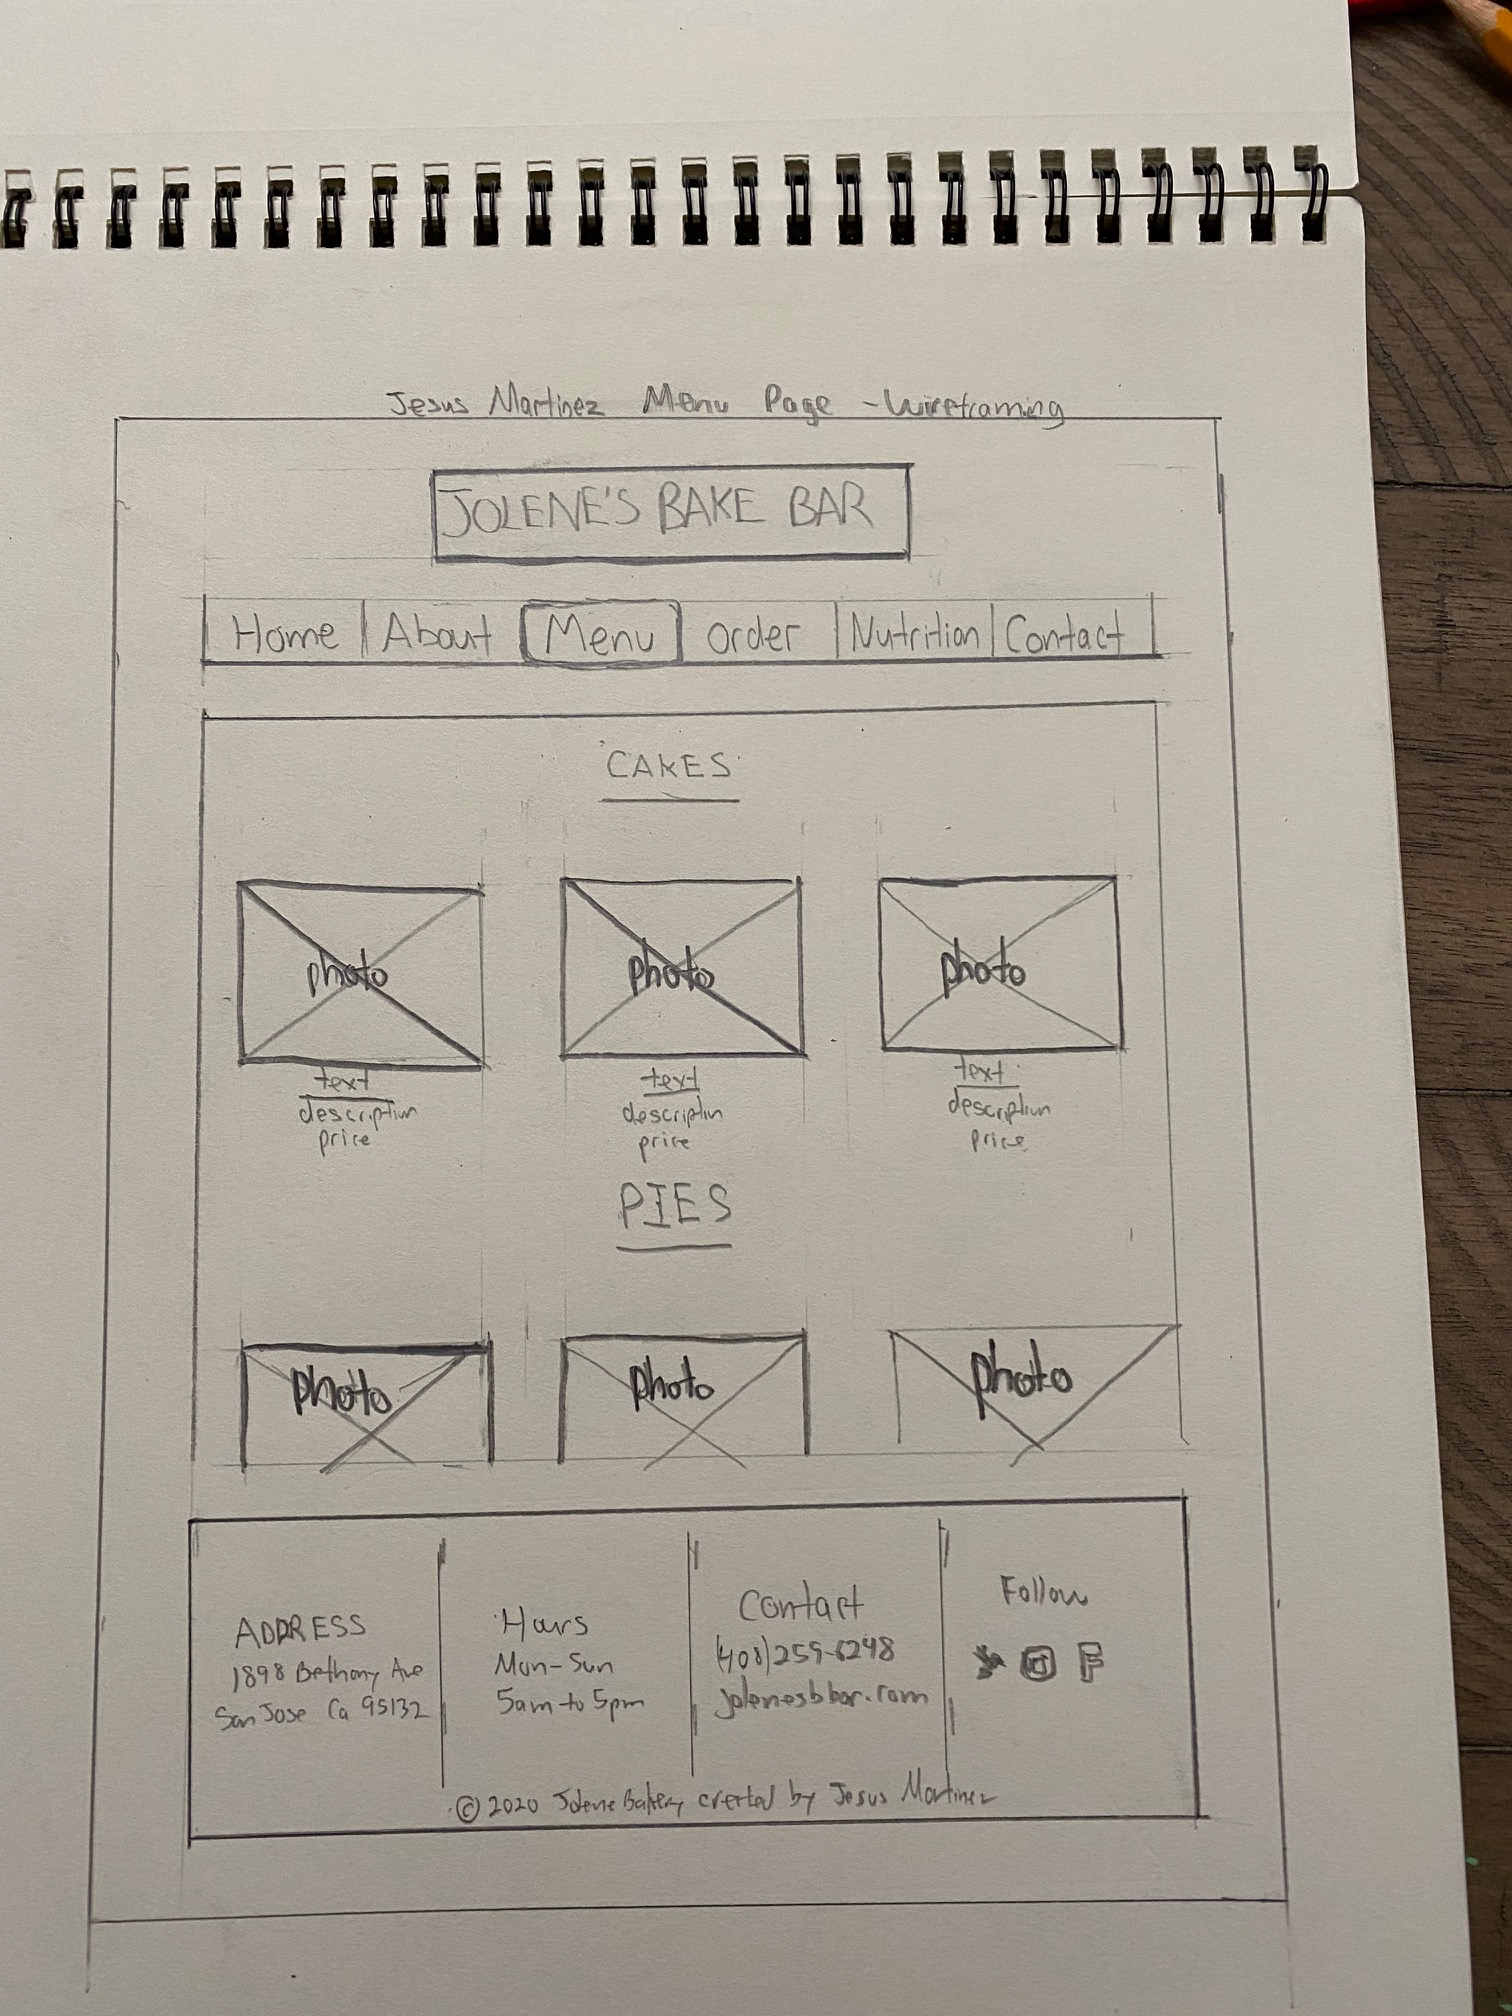 Jesus Martinez Menu Page - Wireframing
JOLENE'S BAKE BAR
Home About Menu order Nutrition Contact
CAKES
photo photo photo
text text text
description description description
price price price
PIES
photo photo photo
ADDRESS
1898 Bethany Ave
San Jose Ca 95132
Hours
Mon-Sun
5am to 5pm
Contact
(408)259-6248
jolenesbbar.com
Follow
F
© 2020 Jolene Bakery created by Jesus Martinez